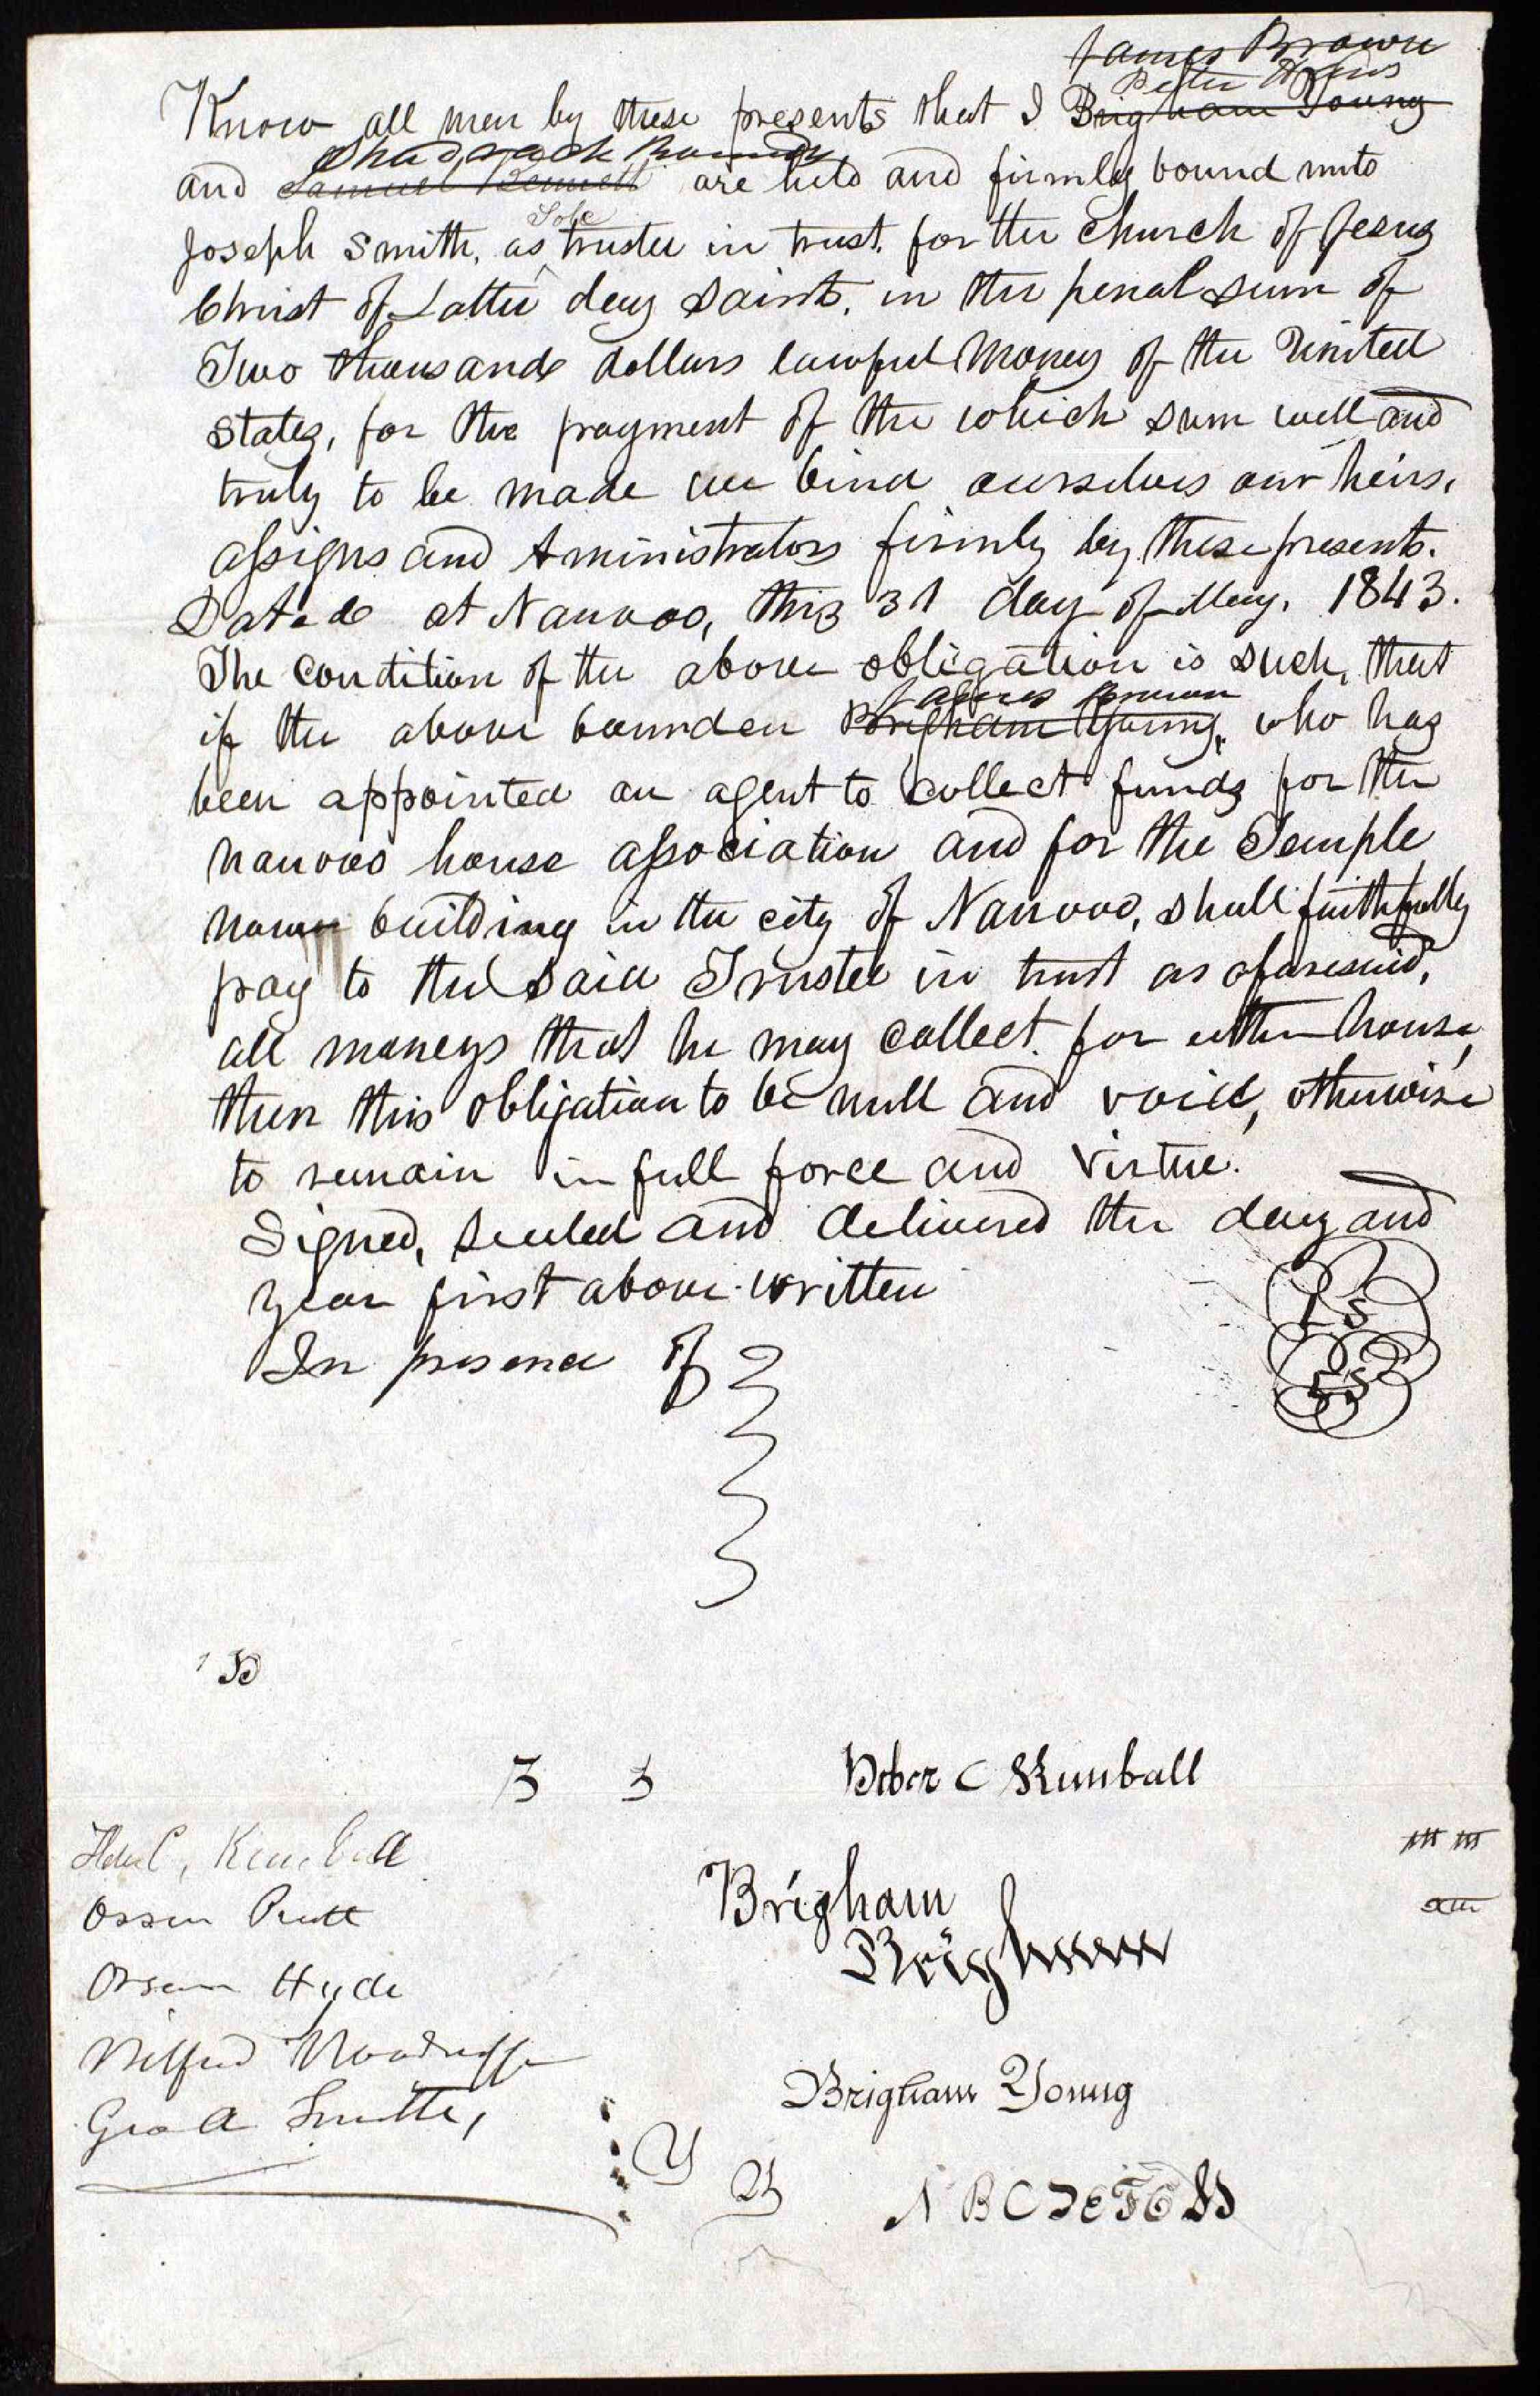 James Brown
Peter Haws
Know all men by these presents that I Brigham Young
Shadrach Roundy
and Samuel Bennett are held and firmly bound unto
Sole
Joseph Smith, as trustee in trust. for the Church of Jesus
Christ of Latter day Saints. in the penal sum of
Two thousand dollars lawful Money of the United
States, for the payment of the which sum well and
truly to be made we bind ourselves our heirs.
assigns and Aministrators firmly by these presents.
Dated at Nauvoo, this 31 day of May. 1843.
The Condition of the above obligation is such, that
James Brown
if the above bounden Brigham Young, who has
been appointed an agent to collect funds for the
nauvoo house association and for the Temple
now building in the city of Nauvoo, shall faithfully
pay to the said Trustee in trust as aforesaid,
all moneys that he may collect for either house,
then this obligation to be null and void, otherwise
to remain in full force and virtue.
Signed, sealed and delivered the day and
year first above written
LS
In presence of
LS
3 3 Heber C Kimball
Heber C, Kimball
Brigham
Orson Pratt
Brigham
Orson Hyde
Wilford Woodruff
Brigham Young
Geo A Smith,
Y
B C D E F G H